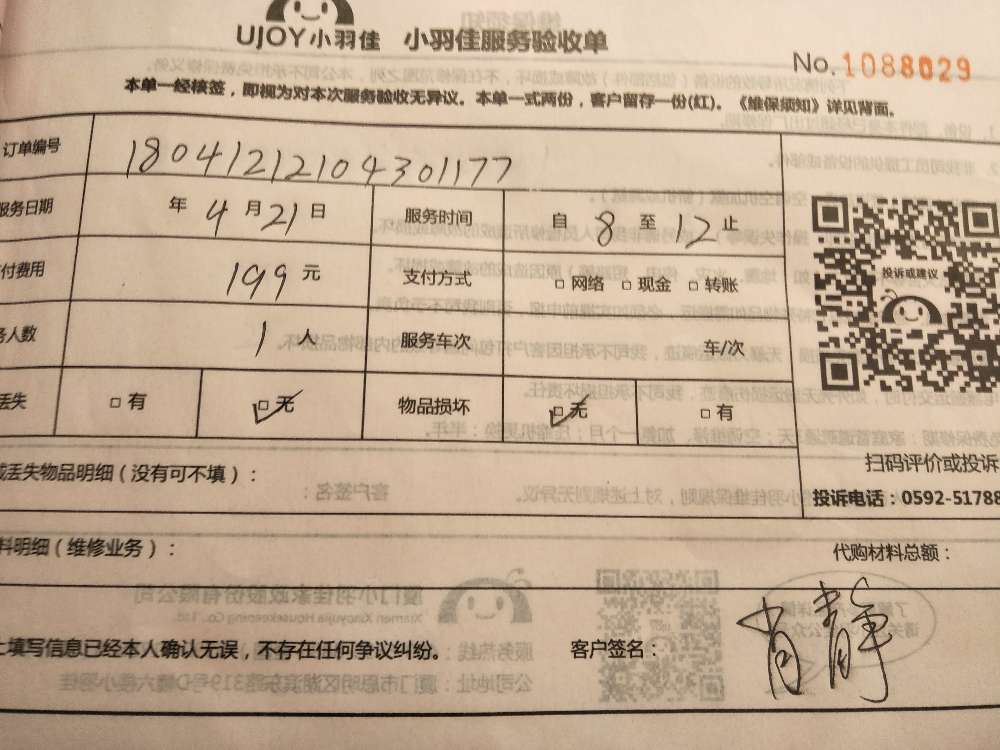 UJOY小羽佳 小羽佳服务验收单
No.1088029
本单一经核签，即视为对本次服务验收无异议。本单一式两份，客户留存一份(红)。《维保须知》详见背面。
订单编号 18041212104301177
服务日期 年 4 月 21 日 服务时间 自 8 至 12 止
付费用 199 元 支付方式 □ 网络 □ 现金 □ 转账
务人数 1 人 服务车次 车/次
丢失 □ 有 □ 无 物品损坏 □ 无 □ 有
投诉或建议
扫码评价或投诉
或丢失物品明细（没有可不填）：
投诉电话：0592-51788
料明细（维修业务）： 代购材料总额：
上填写信息已经本人确认无误，不存在任何争议纠纷。 客户签名： 肖静